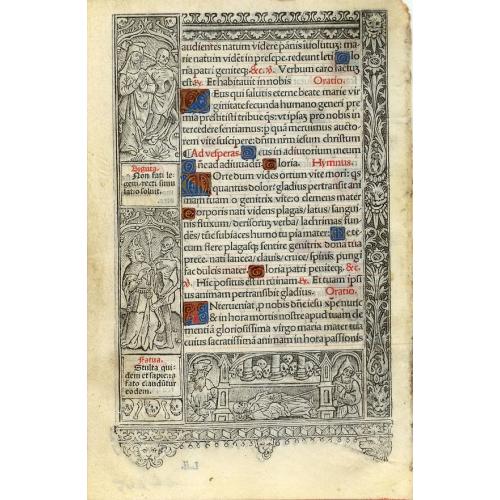 audientes natum videre panis iuolutuʒ: ma
rie natum vidēt in presepe. redeunt leti Glo
loria patri geniteqʒ. &c. ꝟ. Verbum caro factuʒ
est ℟. Et habitauit in nobis Oratio.
Eus qui salutis eterne beate marie vir
ginitate fecunda humano generi pre
mia prestitisti tribue qs: vt ipsaʒ pro nobis in
tercedere sentiamus: p quā meruimus aucto
rem vite suscipere: dnm nrm iesum christum
Ad vesperas Deus in adiutorium meum
ne ad adiuuādū. Gloria. Hymnus.
Orte dum vides ortum vite mori: qs
quantus dolor: gladius pertransit ani
mam tuam o genitrix vite: o clemens mater
Corporis nati videns plagas / latus / sangui
nis fluxum / derisorū verba / lachrimas fun
dēs / tūc subiaces humo tu pia mater:
cum flere plagasqʒ sentire genitrix dona tua
prece. nati lancea / clauis / cruce / spinis pungi
fac dulcis mater. Gloria patri peniteqʒ. &c.
ꝟ. Hic positus est in ruinam ℟. Et tuam ips
ius animam pertransibit gladius. Oratio.
Nterueniat, p nobis dn̄e iesu xp̄e nunc
& in hora mortis nostre apud tuam cle
mentiā gloriosissima virgo maria mater tua
cuius sacratissimā animam in hora passionis
Bigutta.
Non fati le
gem: recti simu
latio soluit.
Fatua.
Stulta qui
dem et sapiens
fato claudūtur
eodem.